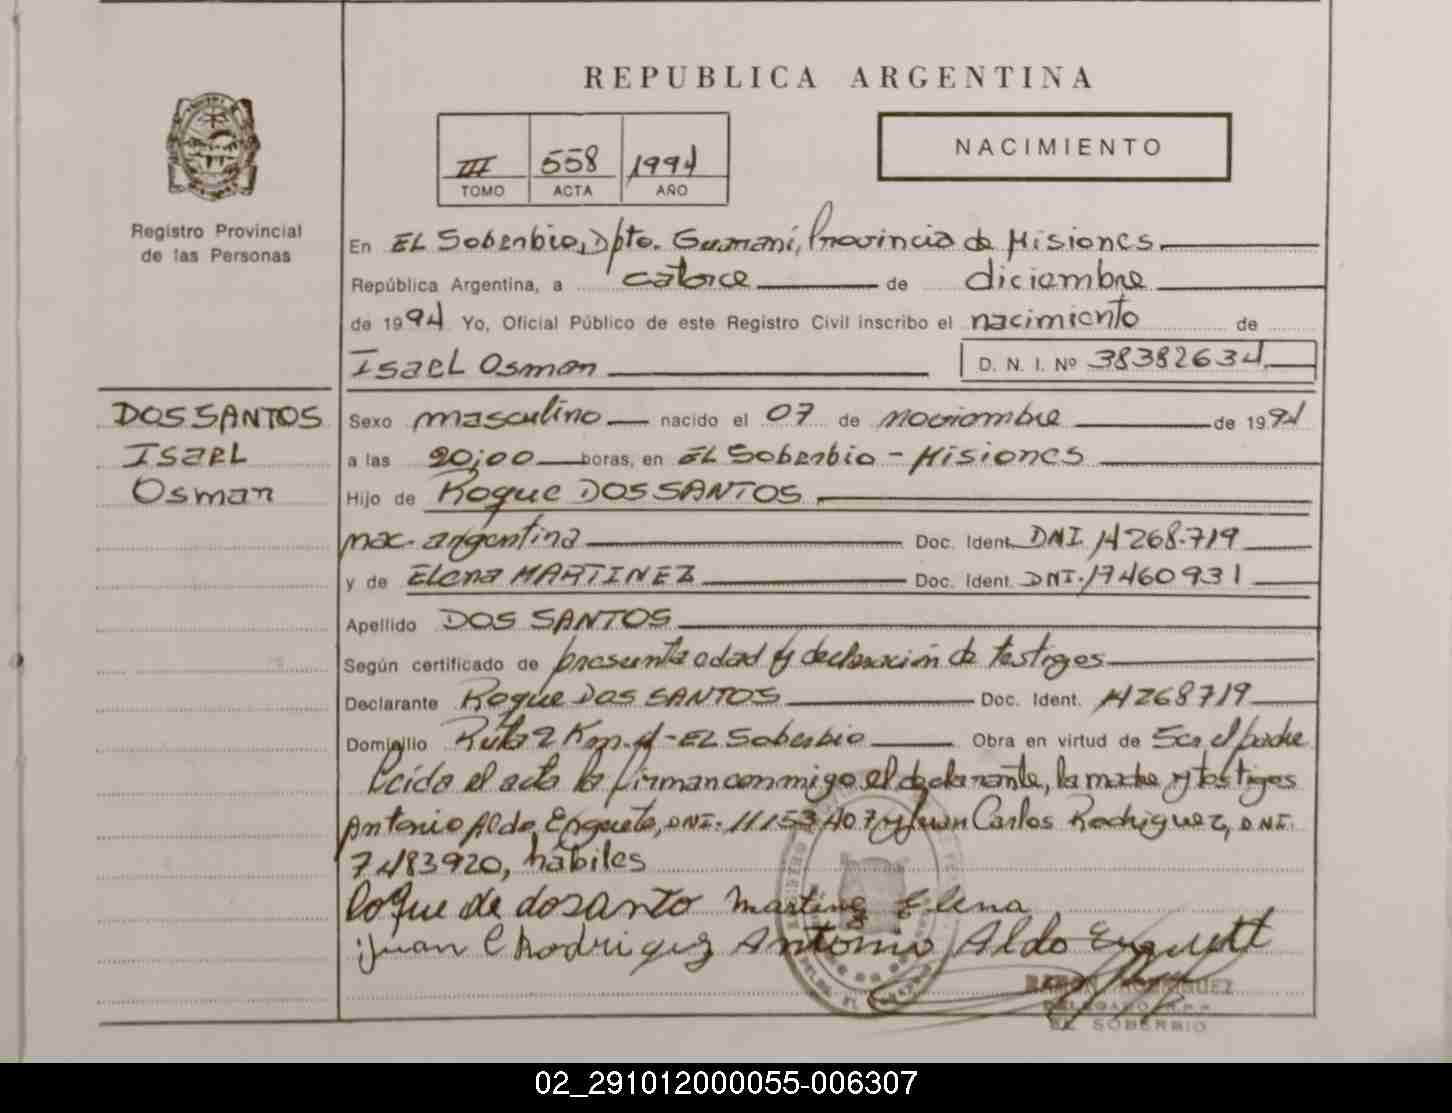 REPUBLICA ARGENTINA
III 558 1994
TOMO ACTA AÑO
NACIMIENTO
Registro Provincial
de las Personas
En EL Soberbio, Dpto. Guaraní, Provincia de Misiones
República Argentina, a catorce de diciembre
de 1994 Yo, Oficial Público de este Registro Civil inscribo el nacimiento de
Isael Osman D. N. I. Nº 38382634
DOS SANTOS
Isael
Osman
Sexo masculino nacido el 07 de noviembre de 1994
a las 20:00 horas, en EL Soberbio - Misiones
Hijo de Roque DOS SANTOS
nac. argentina Doc. Ident. DNI 14268.719
y de Elena MARTINEZ Doc. Ident. DNI. 17460931
Apellido DOS SANTOS
Según certificado de presunta edad y declaración de testigos
Declarante Roque DOS SANTOS Doc. Ident. 14268719
Domicilio Ruta 2 Km. 4 - EL Soberbio Obra en virtud de Ser el padre
Leída el acta la firman conmigo el declarante, la madre y testigos
Antonio Aldo DNI. 11153407 y Juan Carlos Rodriguez, DNI.
7483920, hábiles
Roque de dosanto Martinez Elena
Juan C Rodriguez Antonio Aldo
RAMON RODRIGUEZ
DELEGADO R.P.P.
EL SOBERBIO
02_291012000055-006307